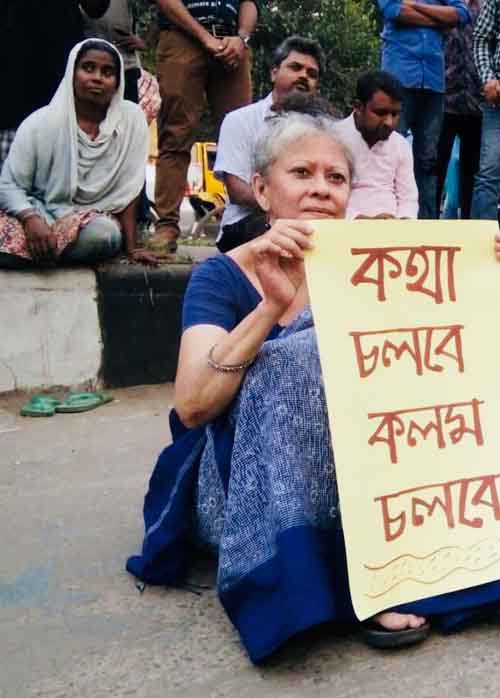 কথা
চলবে
কলম
চলবে